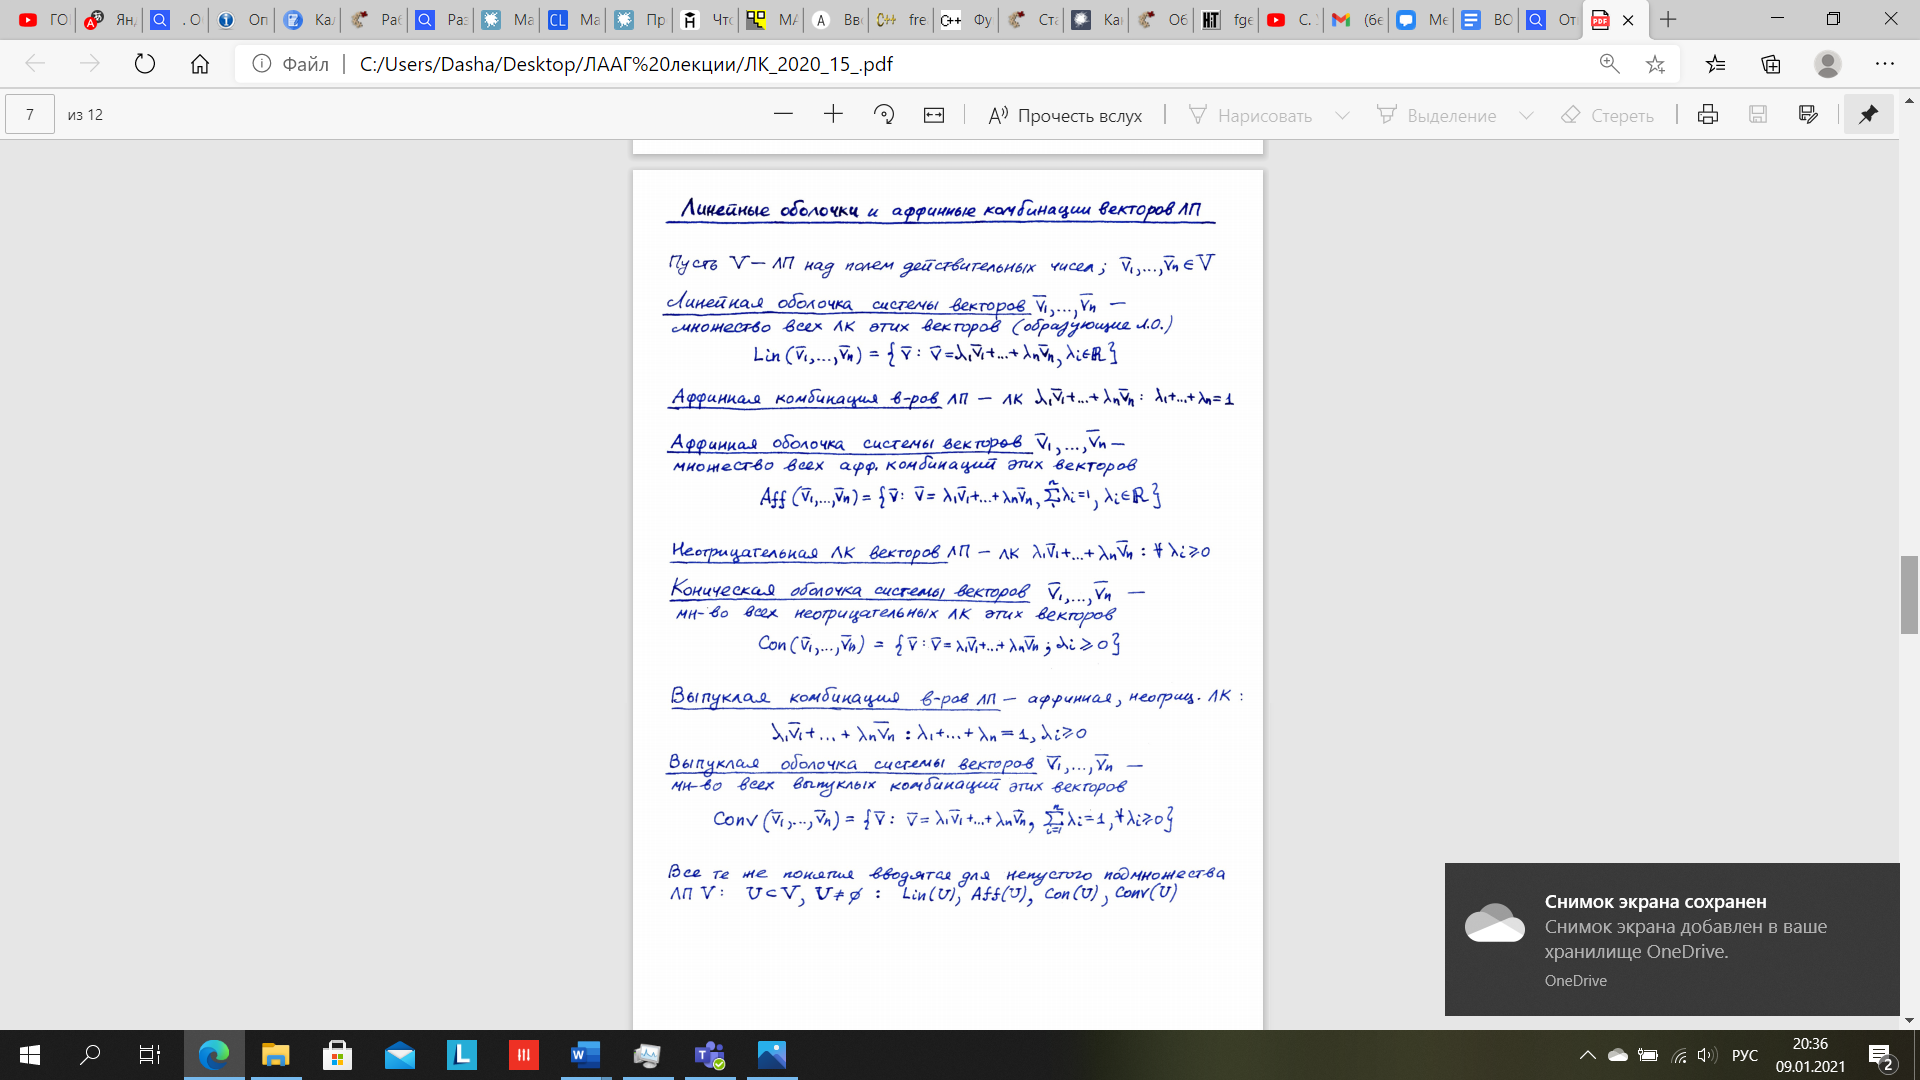 ГО
Янд
. О
Оп
Кал
Раб
Раз
Ма
CL
Ма
Пр
Что
МА
Вво
fre
C++
Фу
Ста
Как
Об
fge
С. У
(бе
Ме
ВО
От
PDF
Файл | C:/Users/Dasha/Desktop/ЛААГ%20лекции/ЛК_2020_15_.pdf
7 из 12
Прочесть вслух
Нарисовать
Выделение
Стереть
Линейные оболочки и аффинные комбинации векторов ЛП
Пусть V — ЛП над полем действительных чисел; v̄₁,...,v̄ₙ ∈ V
Линейная оболочка системы векторов v̄₁,...,v̄ₙ —
множество всех ЛК этих векторов (образующие Л.О.)
Lin (v̄₁,...,v̄ₙ) = { v̄ : v̄ = λ₁v̄₁+...+ λₙv̄ₙ, λᵢ∈ℝ }
Аффинная комбинация в-ров ЛП — ЛК λ₁v̄₁+...+ λₙv̄ₙ : λ₁+...+ λₙ=1
Аффинная оболочка системы векторов v̄₁,...,v̄ₙ —
множество всех афф. комбинаций этих векторов
Aff (v̄₁,...,v̄ₙ) = { v̄ : v̄ = λ₁v̄₁+...+ λₙv̄ₙ, ∑ⁿ₁ λᵢ=1, λᵢ∈ℝ }
Неотрицательная ЛК векторов ЛП — ЛК λ₁v̄₁+...+ λₙv̄ₙ : ∀ λᵢ⩾0
Коническая оболочка системы векторов v̄₁,...,v̄ₙ —
мн-во всех неотрицательных ЛК этих векторов
Con (v̄₁,...,v̄ₙ) = { v̄ : v̄ = λ₁v̄₁+...+ λₙv̄ₙ ; λᵢ ⩾ 0 }
Выпуклая комбинация в-ров ЛП — аффинная, неотриц. ЛК :
λ₁v̄₁+...+ λₙv̄ₙ : λ₁+...+ λₙ = 1, λᵢ⩾0
Выпуклая оболочка системы векторов v̄₁,...,v̄ₙ —
мн-во всех выпуклых комбинаций этих векторов
Conv (v̄₁,...,v̄ₙ) = { v̄ : v̄ = λ₁v̄₁+...+ λₙv̄ₙ, ∑ⁿᵢ₌₁ λᵢ=1, ∀ λᵢ⩾0 }
Все те же понятия вводятся для непустого подмножества
ЛП V : U ⊂ V, U ≠ ∅ : Lin(U), Aff(U), Con(U), Conv(U)
Снимок экрана сохранен
Снимок экрана добавлен в ваше
хранилище OneDrive.
OneDrive
L
W
РУС
20:36
09.01.2021
2